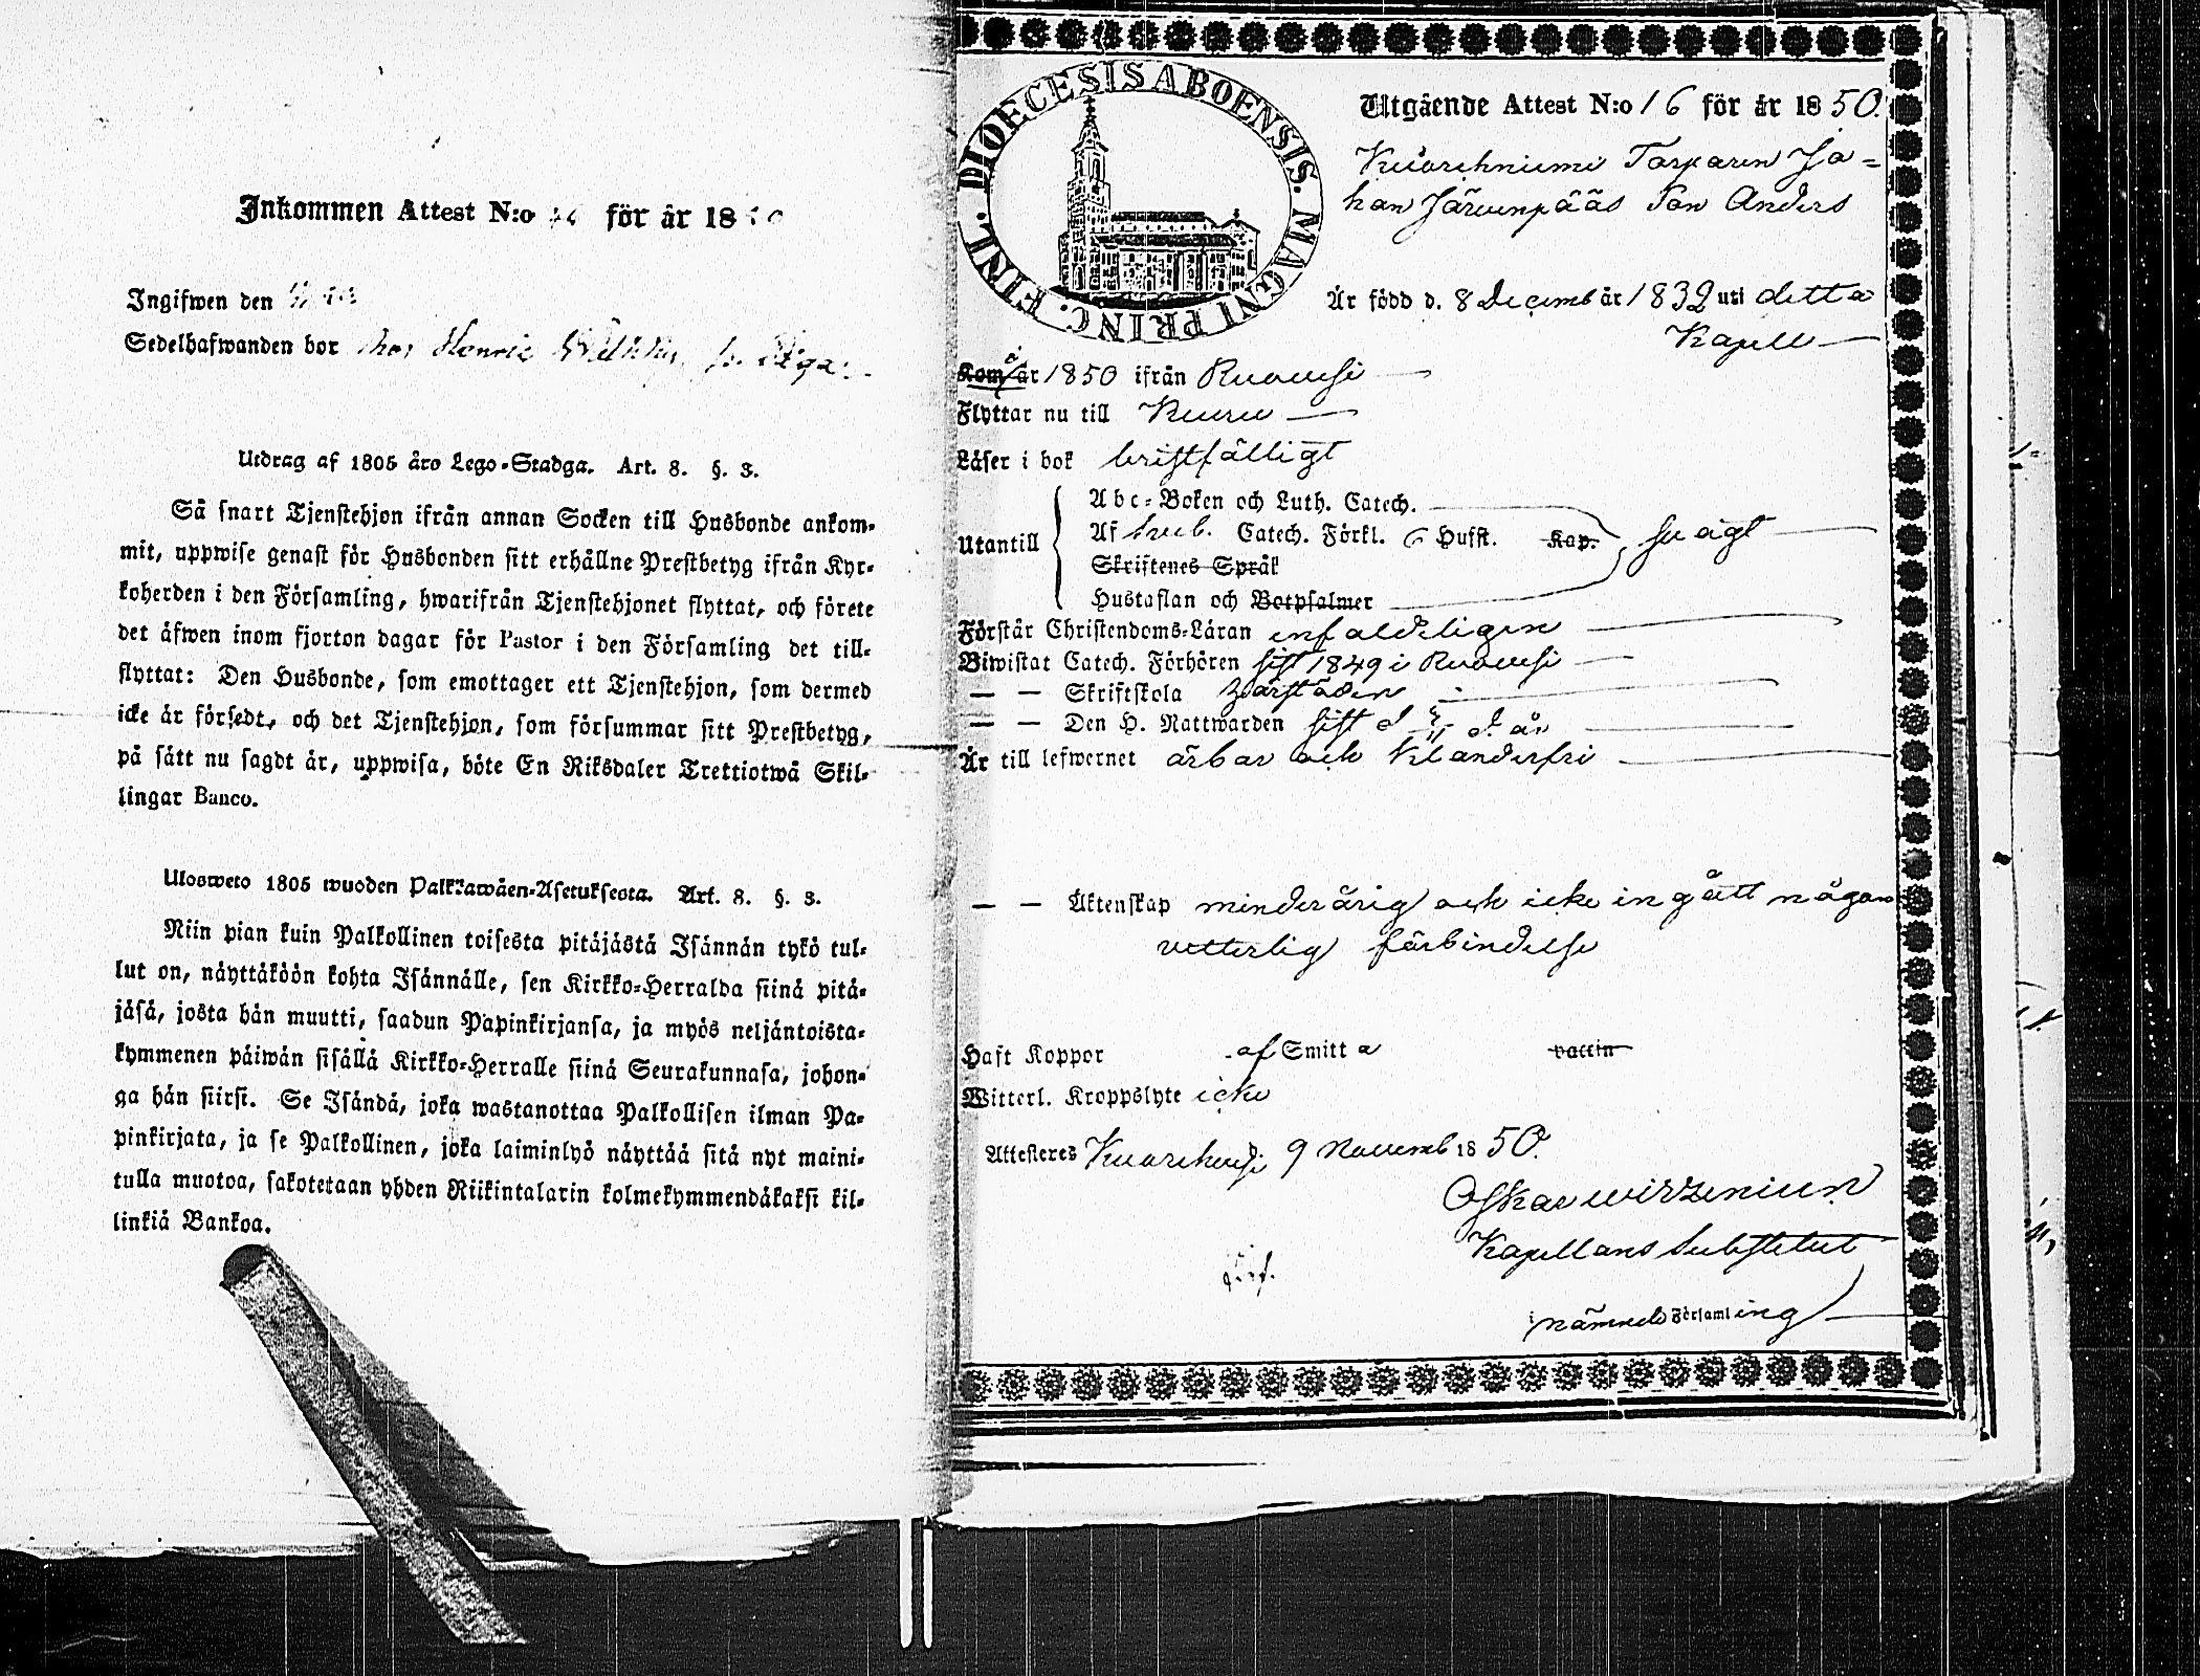 Inkommen Attest N:o för år 18
Ingifwen den
Sedelhafwanden bor hos Henric
Utdrag af 1805 års Lego-Stadga. Art. 8. §. 3.
Så snart Tjenstehjon ifrån annan Socken till Husbonde ankom-
mit, uppwise genast för Husbonden sitt erhållne Prestbetyg ifrån Kyr-
koherden i den Församling, hwarifrån Tjenstehjonet flyttat, och förete
det äfwen inom fjorton dagar för Pastor i den Församling det till-
flyttat: Den Husbonde, som emottager ett Tjenstehjon, som dermed
icke är försedt, och det Tjenstehjon, som försummar sitt Prestbetyg,
på sätt nu sagdt är, uppwisa, böte En Riksdaler Trettiotwå Skil-
lingar Banco.
Ulosweto 1805 wuoden Palkkawäen-Asetuksesta. Art. 8. §. 3.
Niin pian kuin Palkollinen toisesta pitäjästä Isännän tykö tul-
lut on, näyttäköön kohta Isännälle, sen Kirkko-Herralda siinä pitä-
jäsä, josta hän muutti, saadun Papinkirjansa, ja myös neljäntoista-
kymmenen päiwän sisällä Kirkko-Herralle siinä Seurakunnasa, johon-
ga hän siirsi. Se Isändä, joka wastanottaa Palkollisen ilman Pa-
pinkirjata, ja se Palkollinen, joka laiminlyö näyttää sitä nyt maini-
tulla muotoa, sakotetaan yhden Riikintalarin kolmekymmendäkaksi kil-
linkiä Bankoa.
DIOECESIS ABOENSIS. MAGNI PRINC. FINL.
Utgående Attest N:o 16 för år 1850.
Kuorehniemi Torparen Jo=
han Järvenpääs Son Anders
Är född d. 8 Decemb år 1832 uti detta
Kapell
Kom år 1850 ifrån Ruovesi
Flyttar nu till Kuru
Läser i bok bristfälligt
Utantill
Abc=Boken och Luth. Catech.
Af Catech. Förkl. 6 Hufst. Kap. svagt
Skriftenes Språk
Hustaflan och Botpsalmer
Förstår Christendoms=Läran enfaldeligen
Biwistat Catech. Förhören sist 1849 i Ruovesi
— — Skriftskola härstädes
— — Den H. Nattwarden sist d d. år
Är till lefwernet ärbar och klanderfri
— — Äktenskap minderårig och icke ingått någon
vetterlig förbindelse
Haft Koppor af Smitta vaccin
Witterl. Kroppslyte icke
Attesteres Kuorehvesi 9 Novemb 1850.
Oskar Wirzenius
Kapellans Substitut
i nämnde Församling